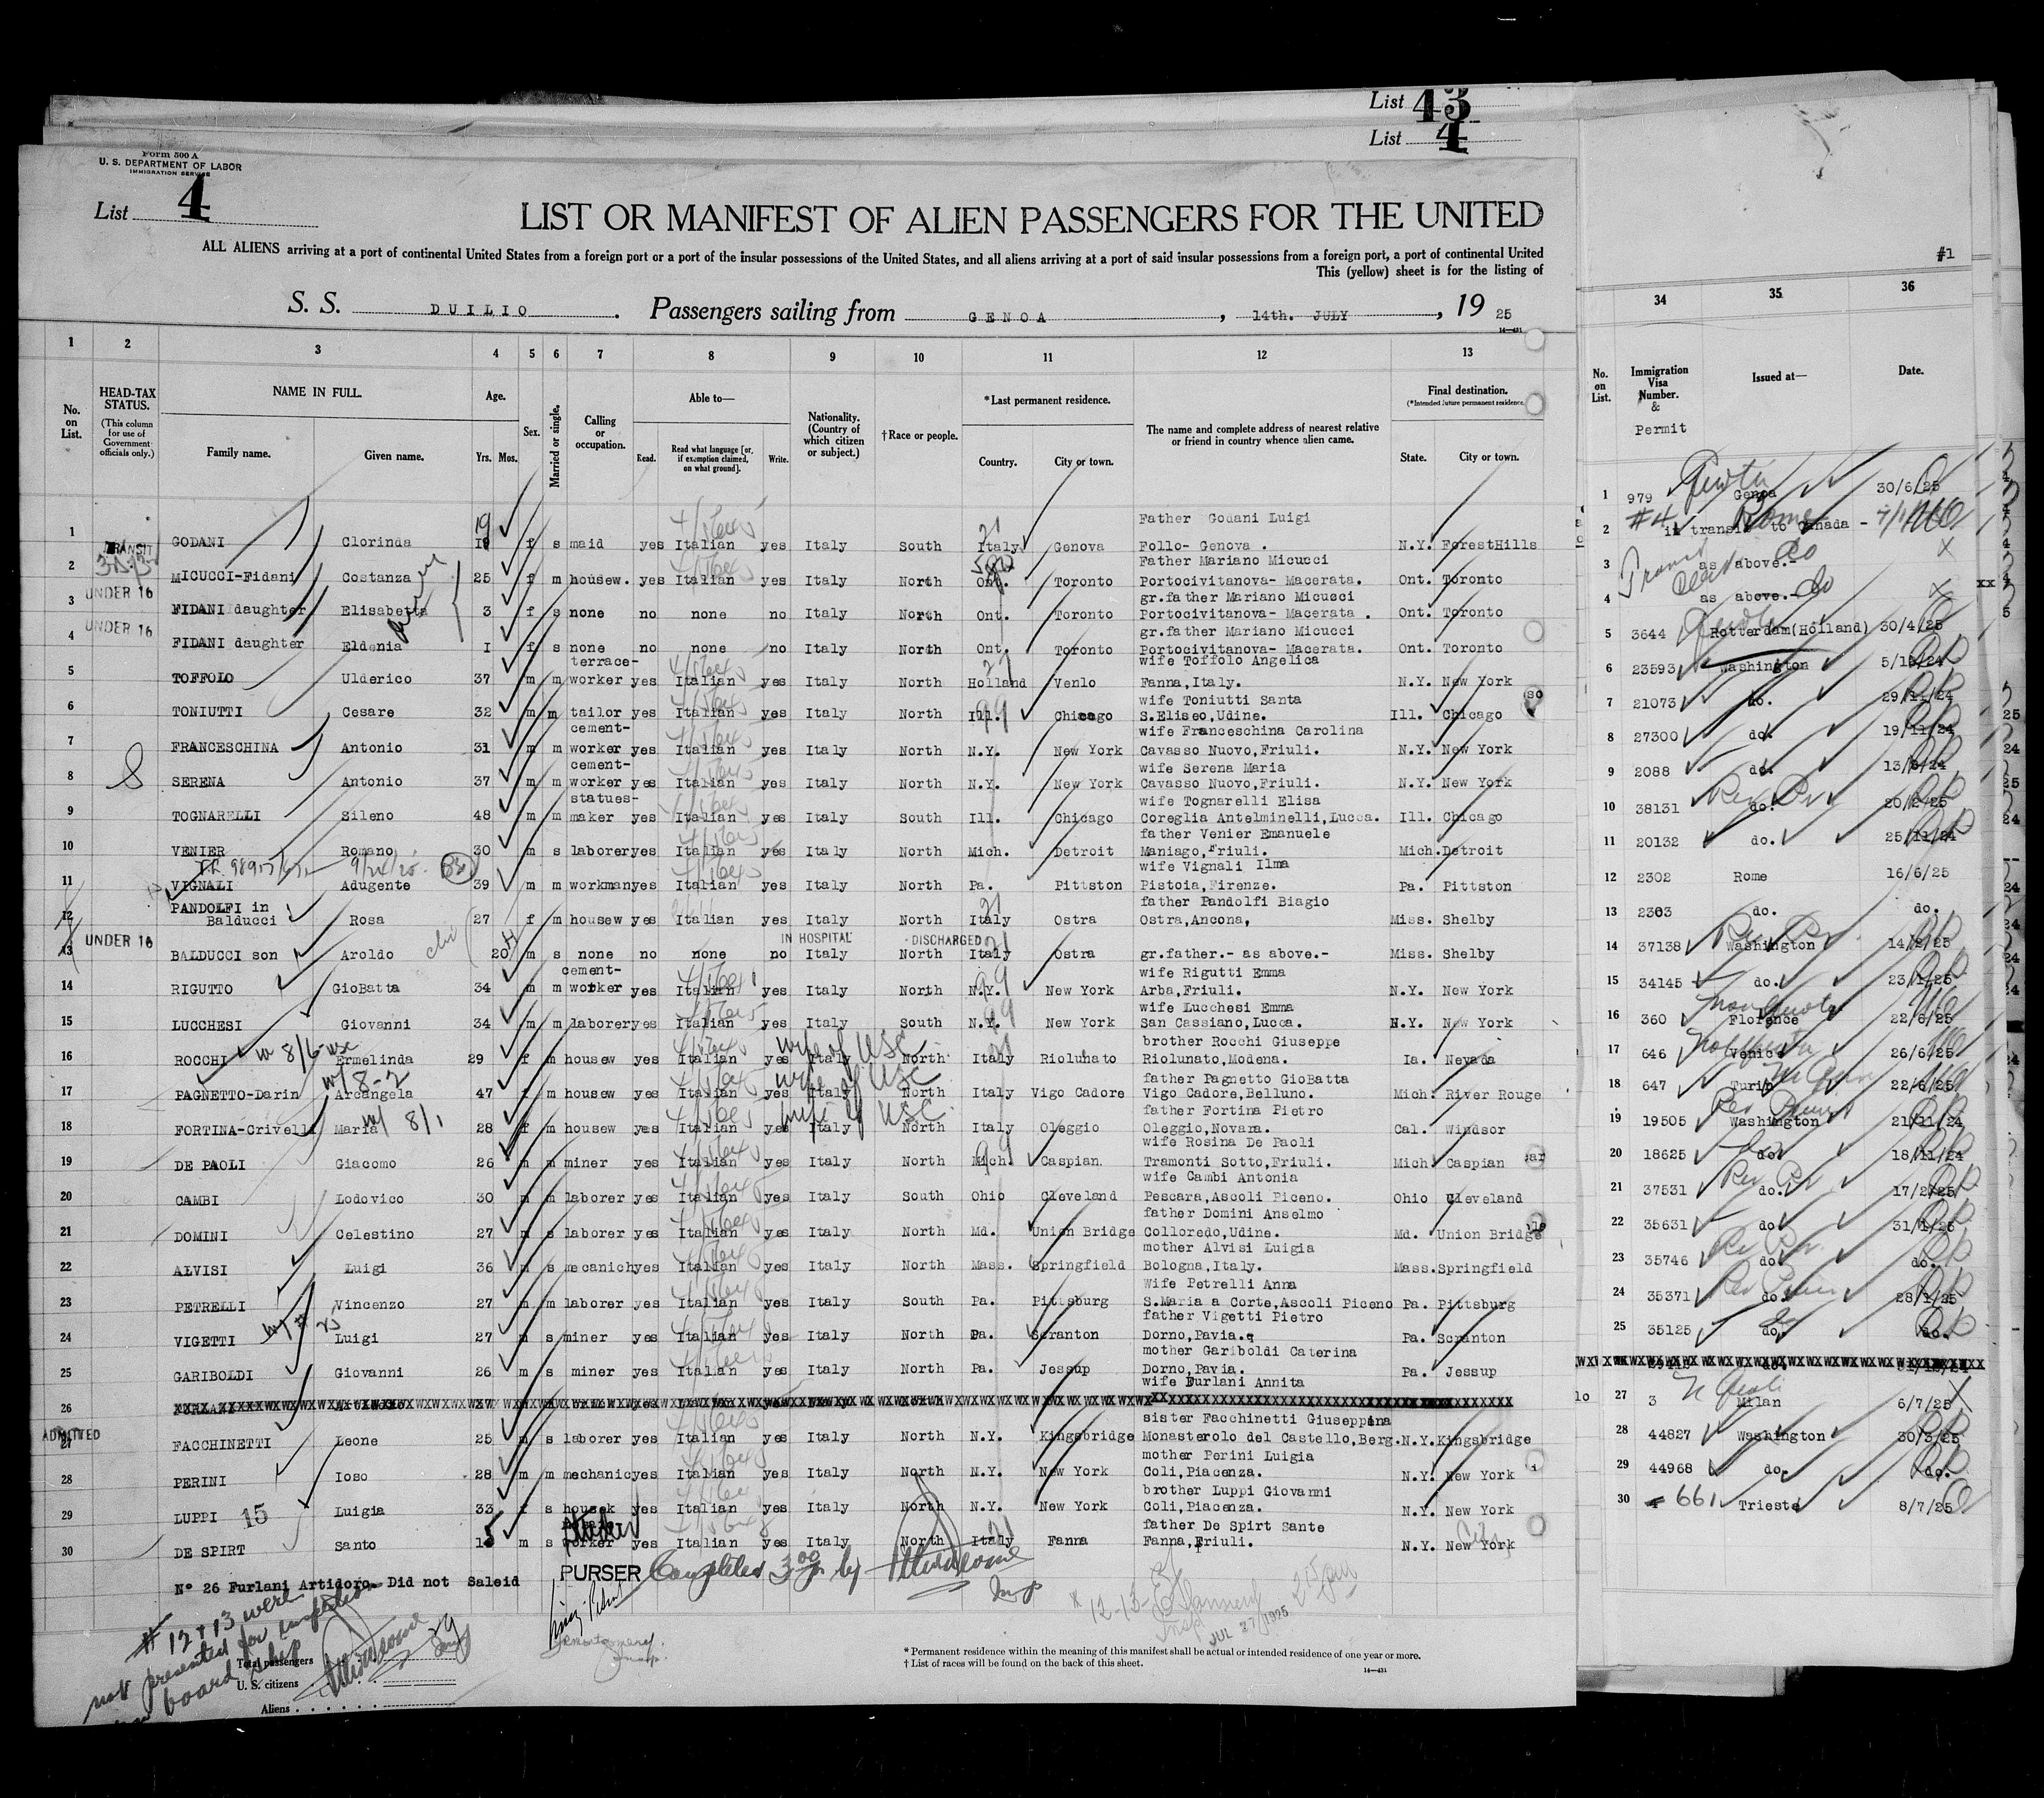 List 43
List 4
Form 500 A
U. S. DEPARTMENT OF LABOR
IMMIGRATION SERVICE
List 4
LIST OR MANIFEST OF ALIEN PASSENGERS FOR THE UNITED
ALL ALIENS arriving at a port of continental United States from a foreign port or a port of the insular possessions of the United States, and all aliens arriving at a port of said insular possessions from a foreign port, a port of continental United
This (yellow) sheet is for the listing of
S. S. DUILIO . Passengers sailing from GENOA , 14th. JULY , 19 25
14—431
1 2 3 4 5 6 7 8 9 10 11 12 13
No. on List. HEAD-TAX STATUS. (This column for use of Government officials only.) NAME IN FULL. Family name. Given name. Age. Yrs. Mos. Sex. Married or single. Calling or occupation. Able to— Read. Read what language [or, if exemption claimed, on what ground]. Write. Nationality. (Country of which citizen or subject.) †Race or people. *Last permanent residence. Country. City or town. The name and complete address of nearest relative or friend in country whence alien came. Final destination. (*Intended future permanent residence.) State. City or town.
Father Godani Luigi
1 GODANI Clorinda 19 f s maid yes Italian yes Italy South Italy Genova Follo- Genova . N.Y. ForestHills
TRANSIT Father Mariano Micucci
2 MICUCCI-Fidani Costanza 25 f m housew. yes Italian yes Italy North Ont. Toronto Portocivitanova- Macerata. Ont. Toronto
UNDER 16 gr.father Mariano Micucci
3 FIDANI daughter Elisabetta 3 f s none no none no Italy North Ont. Toronto Portocivitanova- Macerata . Ont. Toronto
UNDER 16 gr.father Mariano Micucci
4 FIDANI daughter Eldenia I f s none no none no Italy North Ont. Toronto Portocivitanova- Macerata. Ont. Toronto
terrace- wife Toffolo Angelica
5 TOFFOLO Ulderico 37 m m worker yes Italian yes Italy North Holland Venlo Fanna,Italy. N.Y. New York
wife Toniutti Santa
6 TONIUTTI Cesare 32 m m tailor yes Italian yes Italy North Ill. Chicago S.Eliseo,Udine. Ill. Chicago
cement- wife Franceschina Carolina
7 FRANCESCHINA Antonio 31 m m worker yes Italian yes Italy North N.Y. New York Cavasso Nuovo,Friuli. N.Y. New York
cement- wife Serena Maria
8 SERENA Antonio 37 m m worker yes Italian yes Italy North N.Y. New York Cavasso Nuovo,Friuli. N.Y. New York
statues- wife Tognarelli Elisa
9 TOGNARELLI Sileno 48 m m maker yes Italian yes Italy South Ill. Chicago Coreglia Antelminelli,Lucca. Ill. Chicago
father Venier Emanuele
10 VENIER Romano 30 m s laborer yes Italian yes Italy North Mich. Detroit Maniago,Friuli. Mich. Detroit
wife Vignali Ilma
11 VIGNALI Adugente 39 m m workman yes Italian yes Italy North Pa. Pittston Pistoia,Firenze. Pa. Pittston
PANDOLFI in father Pandolfi Biagio
12 Balducci Rosa 27 f m housew yes Italian yes Italy North Italy Ostra Ostra,Ancona, Miss. Shelby
UNDER 16 IN HOSPITAL DISCHARGED
13 BALDUCCI son Aroldo 20 m s none no none no Italy North Italy Ostra gr.father.- as above.- Miss. Shelby
cement- wife Rigutti Emma
14 RIGUTTO GioBatta 34 m m worker yes Italian yes Italy North N.Y. New York Arba,Friuli. N.Y. New York
wife Lucchesi Emma
15 LUCCHESI Giovanni 34 m m laborer yes Italian yes Italy South N.Y. New York San Cassiano,Lucca. N.Y. New York
wife of USC brother Rocchi Giuseppe
16 ROCCHI Ermelinda 29 f m housew yes Italian yes Italy North Italy Riolunato Riolunato,Modena. Ia. Nevada
wife of USC father Pagnetto GioBatta
17 PAGNETTO-Darin Arcangela 47 f m housew yes Italian yes Italy North Italy Vigo Cadore Vigo Cadore,Belluno. Mich. River Rouge
wife of USC father Fortina Pietro
18 FORTINA-Crivelli Maria 28 f m housew yes Italian yes Italy North Italy Oleggio Oleggio,Novara. Cal. Windsor
wife Rosina De Paoli
19 DE PAOLI Giacomo 26 m m miner yes Italian yes Italy North Mich. Caspian Tramonti Sotto,Friuli. Mich. Caspian
wife Cambi Antonia
20 CAMBI Lodovico 30 m m laborer yes Italian yes Italy South Ohio Cleveland Pescara,Ascoli Piceno. Ohio Cleveland
father Domini Anselmo
21 DOMINI Celestino 27 m s laborer yes Italian yes Italy North Md. Union Bridge Colloredo,Udine. Md. Union Bridge
mother Alvisi Luigia
22 ALVISI Luigi 36 m s mecanich yes Italian yes Italy North Mass. Springfield Bologna,Italy. Mass. Springfield
Wife Petrelli Anna
23 PETRELLI Vincenzo 27 m m laborer yes Italian yes Italy South Pa. Pittsburg S.Maria a Corte,Ascoli Piceno Pa. Pittsburg
father Vigetti Pietro
24 VIGETTI Luigi 27 m s miner yes Italian yes Italy North Pa. Scranton Dorno,Pavia. Pa. Scranton
mother Gariboldi Caterina
25 GARIBOLDI Giovanni 26 m s miner yes Italian yes Italy North Pa. Jessup Dorno,Pavia. Pa. Jessup
wife Furlani Annita
26
ADMITTED sister Facchinetti Giuseppina
27 FACCHINETTI Leone 25 m s laborer yes Italian yes Italy North N.Y. Kingsbridge Monasterolo del Castello,Berg. N.Y. Kingsbridge
mother Perini Luigia
28 PERINI Ioso 28 m m mechanic yes Italian yes Italy North N.Y. New York Coli,Piacenza. N.Y. New York
brother Luppi Giovanni
29 LUPPI 15 Luigia 33 f s housek yes Italian yes Italy North N.Y. New York Coli,Piacenza. N.Y. New York
father De Spirt Sante
30 DE SPIRT Santo 15 m s worker yes Italian yes Italy North Italy Fanna Fanna,Friuli. N.Y. New York City
N° 26 Furlani Artidoro. Did not Saleid
PURSER Completed 3 00 pm by
# 12 + 13 were
not presented for inspection
on board ship
12-13-
JUL 27 1925
Total passengers
U. S. citizens
Aliens
* Permanent residence within the meaning of this manifest shall be actual or intended residence of one year or more.
† List of races will be found on the back of this sheet.
14—431
#1
34 35 36
No. on List. Immigration Visa Number. & Permit Issued at— Date.
1 979 Genoa 30/6/25
2 in transit to Canada -
3 as above.-
4 as above.-
5 3644 Rotterdam(Holland) 30/4/25
6 23593 Washington
7 21073 do. 29/11/24
8 27300 do. 19/11/24
9 2088 do.
10 38131 do. 20/2/25
11 20132 do. 25/11/24
12 2302 Rome 16/6/25
13 2303 do. do.
14 37138 Washington 14/2/25
15 34145 do. 23/1/25
16 360 Florence 22/6/25
17 646 Venice 26/6/25
18 647 Turin 22/6/25
19 19505 Washington 21/11/24
20 18625 do. 18/11/24
21 37531 do. 17/2/25
22 35631 do. 31/1/25
23 35746 do. do.
24 35371 do. 28/1/25
25 35125 do. do.
27 3 Milan 6/7/25
28 44827 Washington 30/3/25
29 44968 do. do.
30 661 Trieste 8/7/25